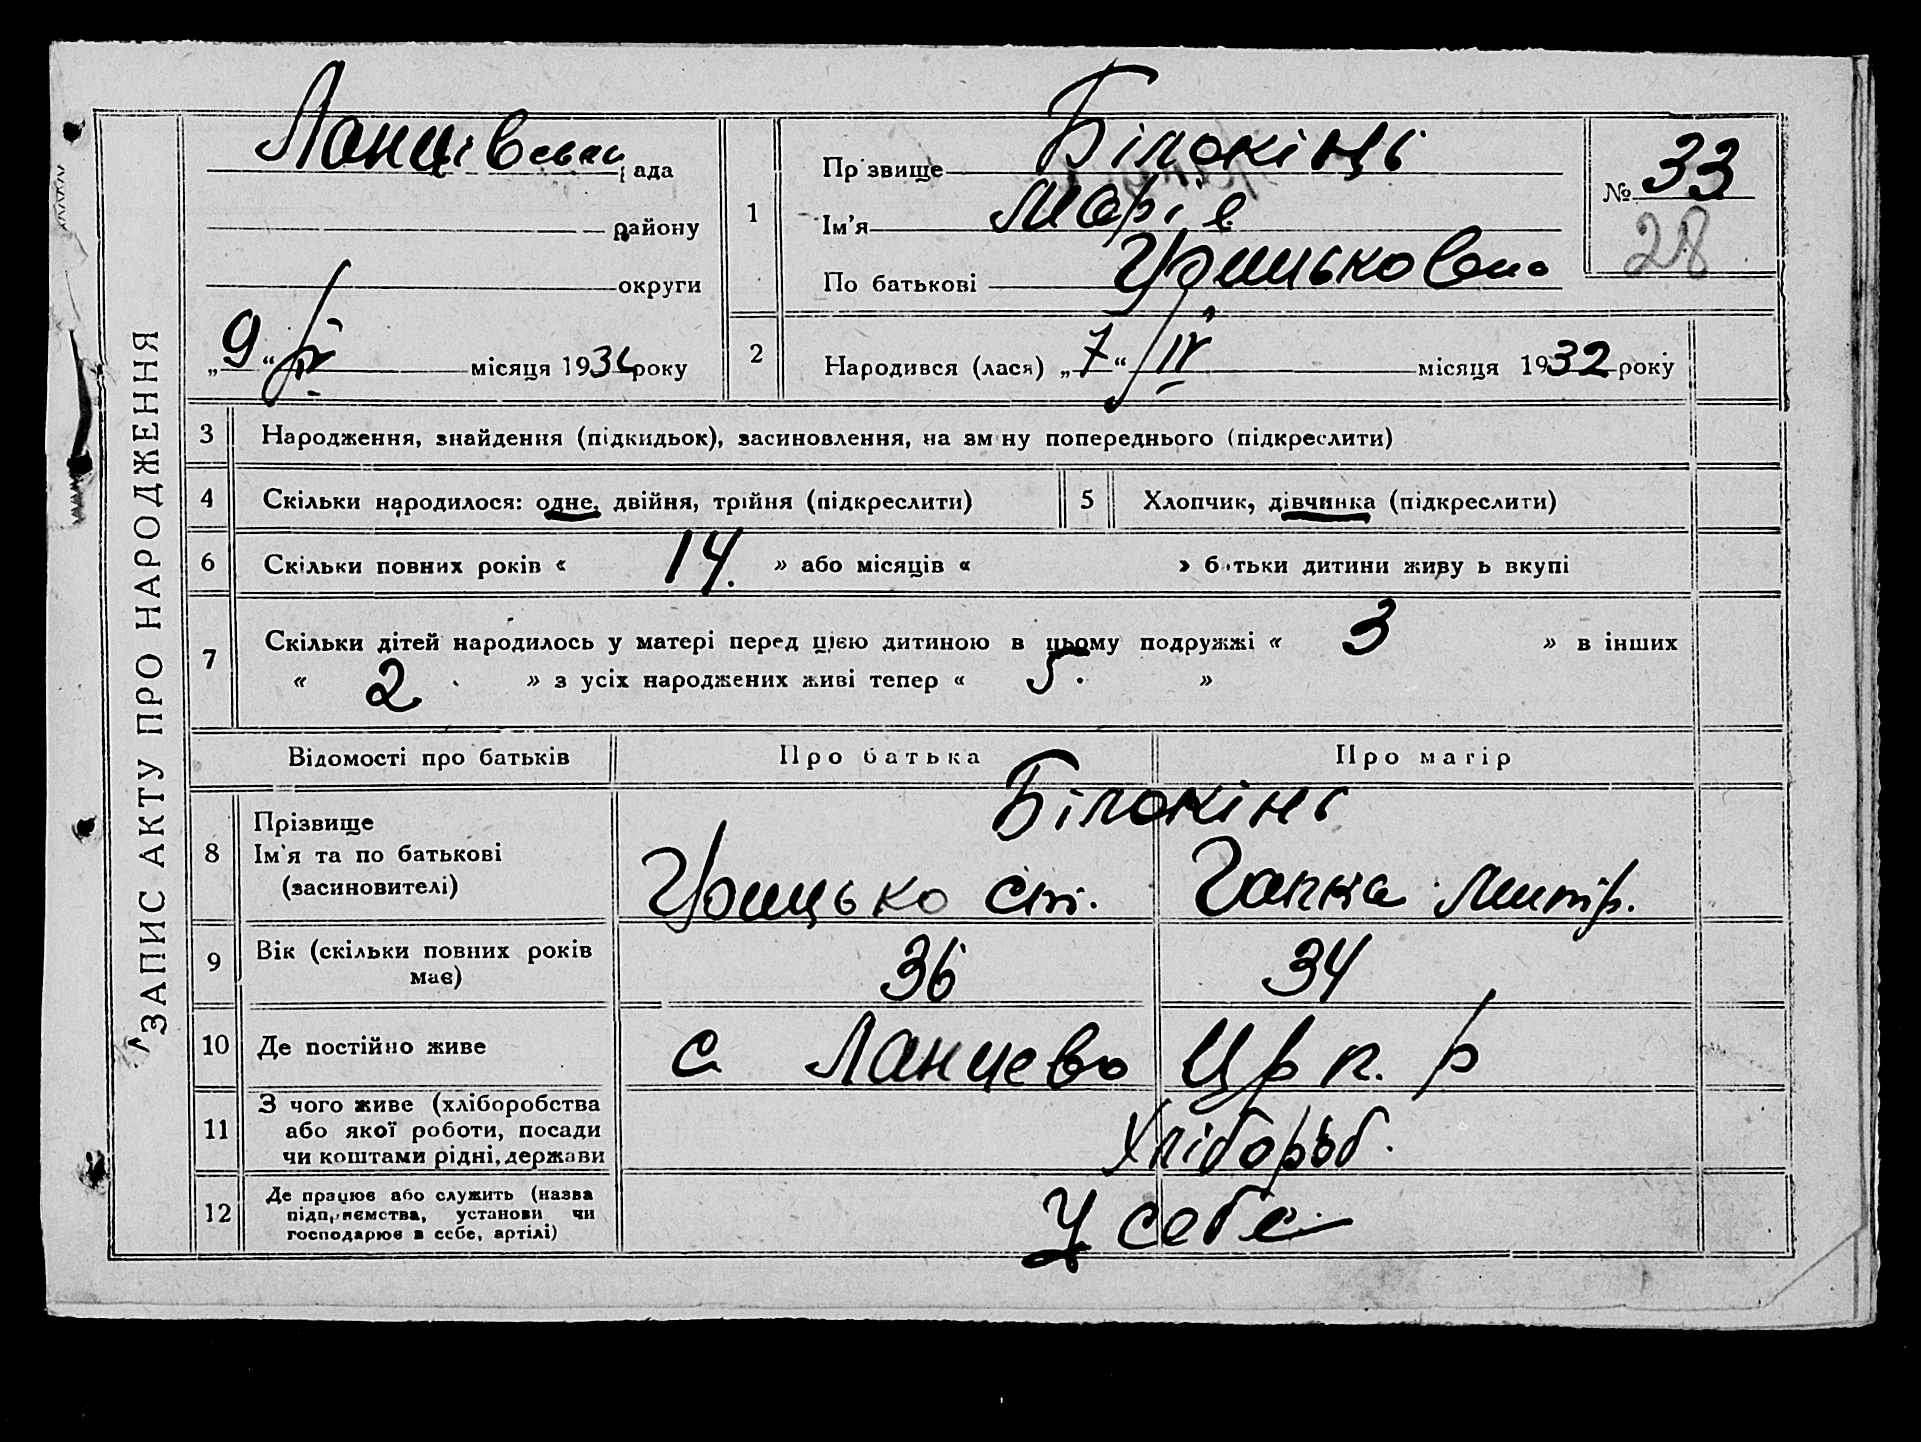 ЗАПИС АКТУ ПРО НАРОДЖЕННЯ
Ланцівська рада
району
округи
„9“ IV місяця 1932 року
1
Прізвище Білокінь
Ім'я Марія
По батькові Грицьковна
№ 33
28
2
Народився (лася) „7“ IV місяця 1932 року
3 Народження, знайдення (підкидьок), засиновлення, на зміну попереднього (підкреслити)
4 Скільки народилося: одне, двійня, трійня (підкреслити)
5 Хлопчик, дівчинка (підкреслити)
6 Скільки повних років « 14. » або місяців « » батьки дитини живуть вкупі
7 Скільки дітей народилось у матері перед цією дитиною в цьому подружжі « 3 » в інших
« 2 » з усіх народжених живі тепер « 5. »
Відомості про батьків Про батька Про матір
8 Прізвище Білокінь
Ім'я та по батькові
(засиновителі) Грицько Ст. Гапка Митр.
9 Вік (скільки повних років має) 36 34
10 Де постійно живе с Ланцево Цр п. р
11 З чого живе (хліборобства
або якої роботи, посади
чи коштами рідні, держави Хлібороб.
12 Де працює або служить (назва
підприємства, установи чи
господарює в себе, артілі) У себе